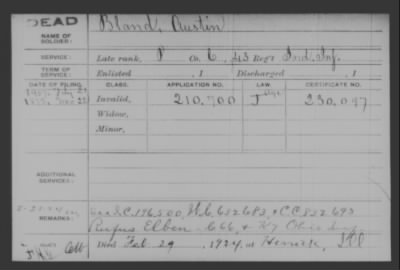 DEAD
NAME OF SOLDIER: Bland, Austin
SERVICE: Late rank, P Co. C, 43 Reg't Ind. Inf.
TERM OF SERVICE: Enlisted , 1 Discharged , 1
DATE OF FILING. CLASS. APPLICATION NO. LAW. CERTIFICATE NO.
Invalid, 210.700 J 230.097
Widow,
Minor,
ADDITIONAL SERVICES:
REMARKS: S.C. 196500, W.C. 632683, & C.C. 852693
Rufus Elben C 66, & 47 Ohio Inf
Died Feb. 29, 1924, at Herrick, Ill